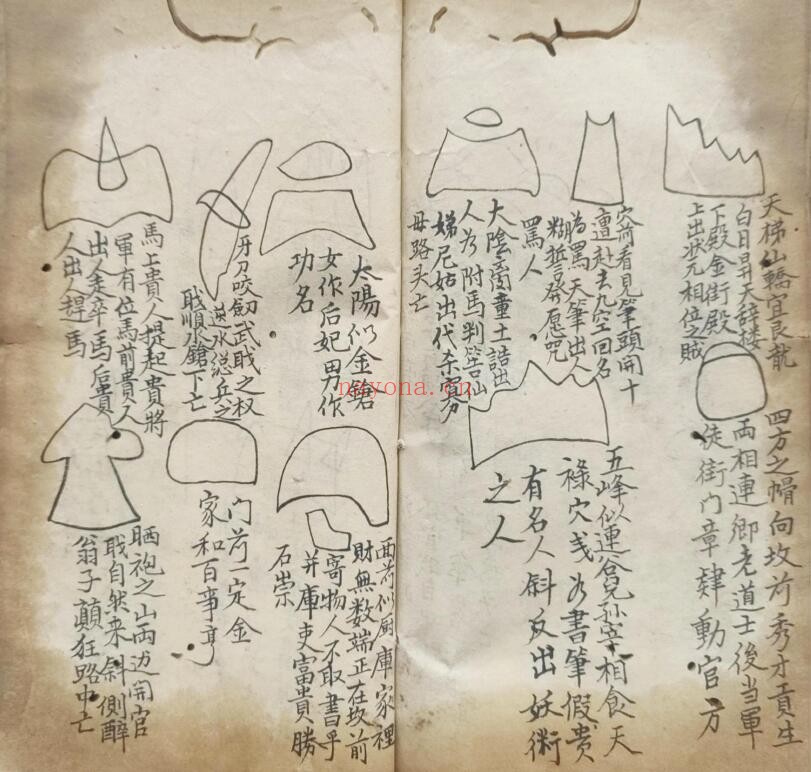 天梯山轎宜良龍
白日昇天辞楼
下殿金街殿
上出状元相位之賊
四方之帽向坟前秀才貢生
两相連鄉老道士後当軍
徒街门章肆動官方
穴前看見筆頭開十
遭赴去九空回名
為罵天筆出人
糊誓發愿咒
罵人
五峰似連谷兒孫宰相食天
祿穴美为書筆假贵
有名人斜反出妖術
之人
太陰商童土誥出
人为附馬判答山
娣尼姑出代杀寡
母路头亡
太陽似金鎗
女作后妃男作
功名
面前似厨庫家裡
財無数端正在坟前
寄物人不取書乎
并庫吏富貴勝
石崇
牙刀咬劒武戝之权
逆水総兵之
戝順水鎗下亡
门前一定金
家和百事亨
馬上貴人提起貴將
軍有位馬前貴人
出人走卒馬后貴
人出人趕馬
晒袍之山两边開官
戝自然来斜側醉
翁子顛狂路中亡
nayona.cn